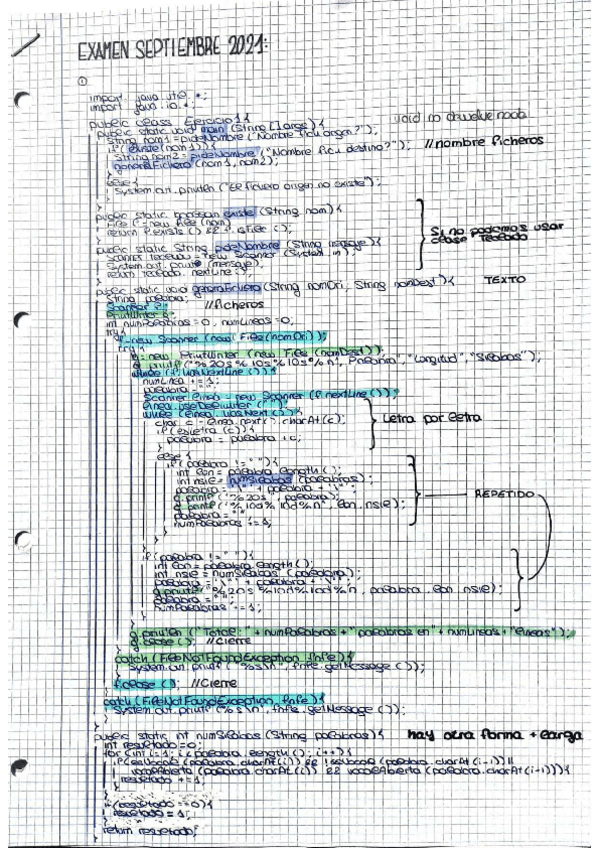 EXAMEN SEPTIEMBRE 2021:
①
import java.util.*;
import java.io.*;
public class Ejercicio1{
public static void main (String[] args){
void no devuelve nada
String nom1 = pideNombre ("Nombre ficu origen?");
if (existe(nom1)){
String nom2 = pideNombre ("Nombre ficu destino?"); //nombre ficheros
generaFichero (nom1, nom2);
}
else{
System.out.println ("El fichero origen no existe");
}
public static boolean existe (String nom){
File f = new File (nom);
return f.exists () && f.isFile ();
}
Si no podemos usar
clase Teclado
public static String pideNombre (String mensaje){
Scanner teclado = new Scanner (System.in);
System.out.print (mensaje);
return teclado.nextLine ();
}
public static void generaFichero (String nomOri, String nomDest){ TEXTO
String palabra;
Scanner f;
//ficheros
PrintWriter g;
int numPalabras = 0, numLineas = 0;
try{
f = new Scanner (new File (nomOri));
try{
g = new PrintWriter (new File (nomDest));
g.printf ("%20s %10s %10s%n", "Palabra", "Longitud", "Silabas");
while (f.hasNextLine ()){
numLinea += 1;
palabra = "";
Scanner linea = new Scanner (f.nextLine ());
linea.useDelimiter ("");
while (linea.hasNext ()){
char c = linea.next().charAt (c);
if (esLetra (c)){
palabra = palabra + c;
}
Letra por letra
else{
if (palabra != ""){
int lon = palabra.length ();
int nsil = numSilabas (palabras);
palabra = "\"" + palabra + "\"";
g.printf ("%20s", palabra);
g.printf ("%10d %10d%n", lon, nsil);
palabra = "";
numPalabras += 1;
}
REPETIDO
if (palabra != ""){
int lon = palabra.length ();
int nsil = numSilabas (palabra);
palabra = "\"" + palabra + "\"";
g.printf ("%20s %10d%10d%n", palabra, lon, nsil);
palabra = "";
numPalabras += 1;
}
g.println ("Total: " + numPalabras + " palabras en" + numLineas + "lineas");
g.close (); //Cierre
}
catch (FileNotFoundException fnfe){
System.out.printf ("%s\n", fnfe.getMessage ());
}
f.close (); //Cierre
}
catch (FileNotFoundException fnfe){
System.out.printf ("%s\n", fnfe.getMessage ());
}
public static int numSilabas (String palabras){ hay otra forma + larga
int resultado = 0;
for (int i = 1; i < palabra.length (); i++){
if (esVocal (palabra.charAt(i)) && !esVocal (palabra.charAt(i-1)) ||
vocalAbierta (palabra.charAt(i)) && vocalAbierta (palabra.charAt(i-1))){
resultado += 1;
}
if (resultado == 0){
resultado = 1;
}
return resultado;